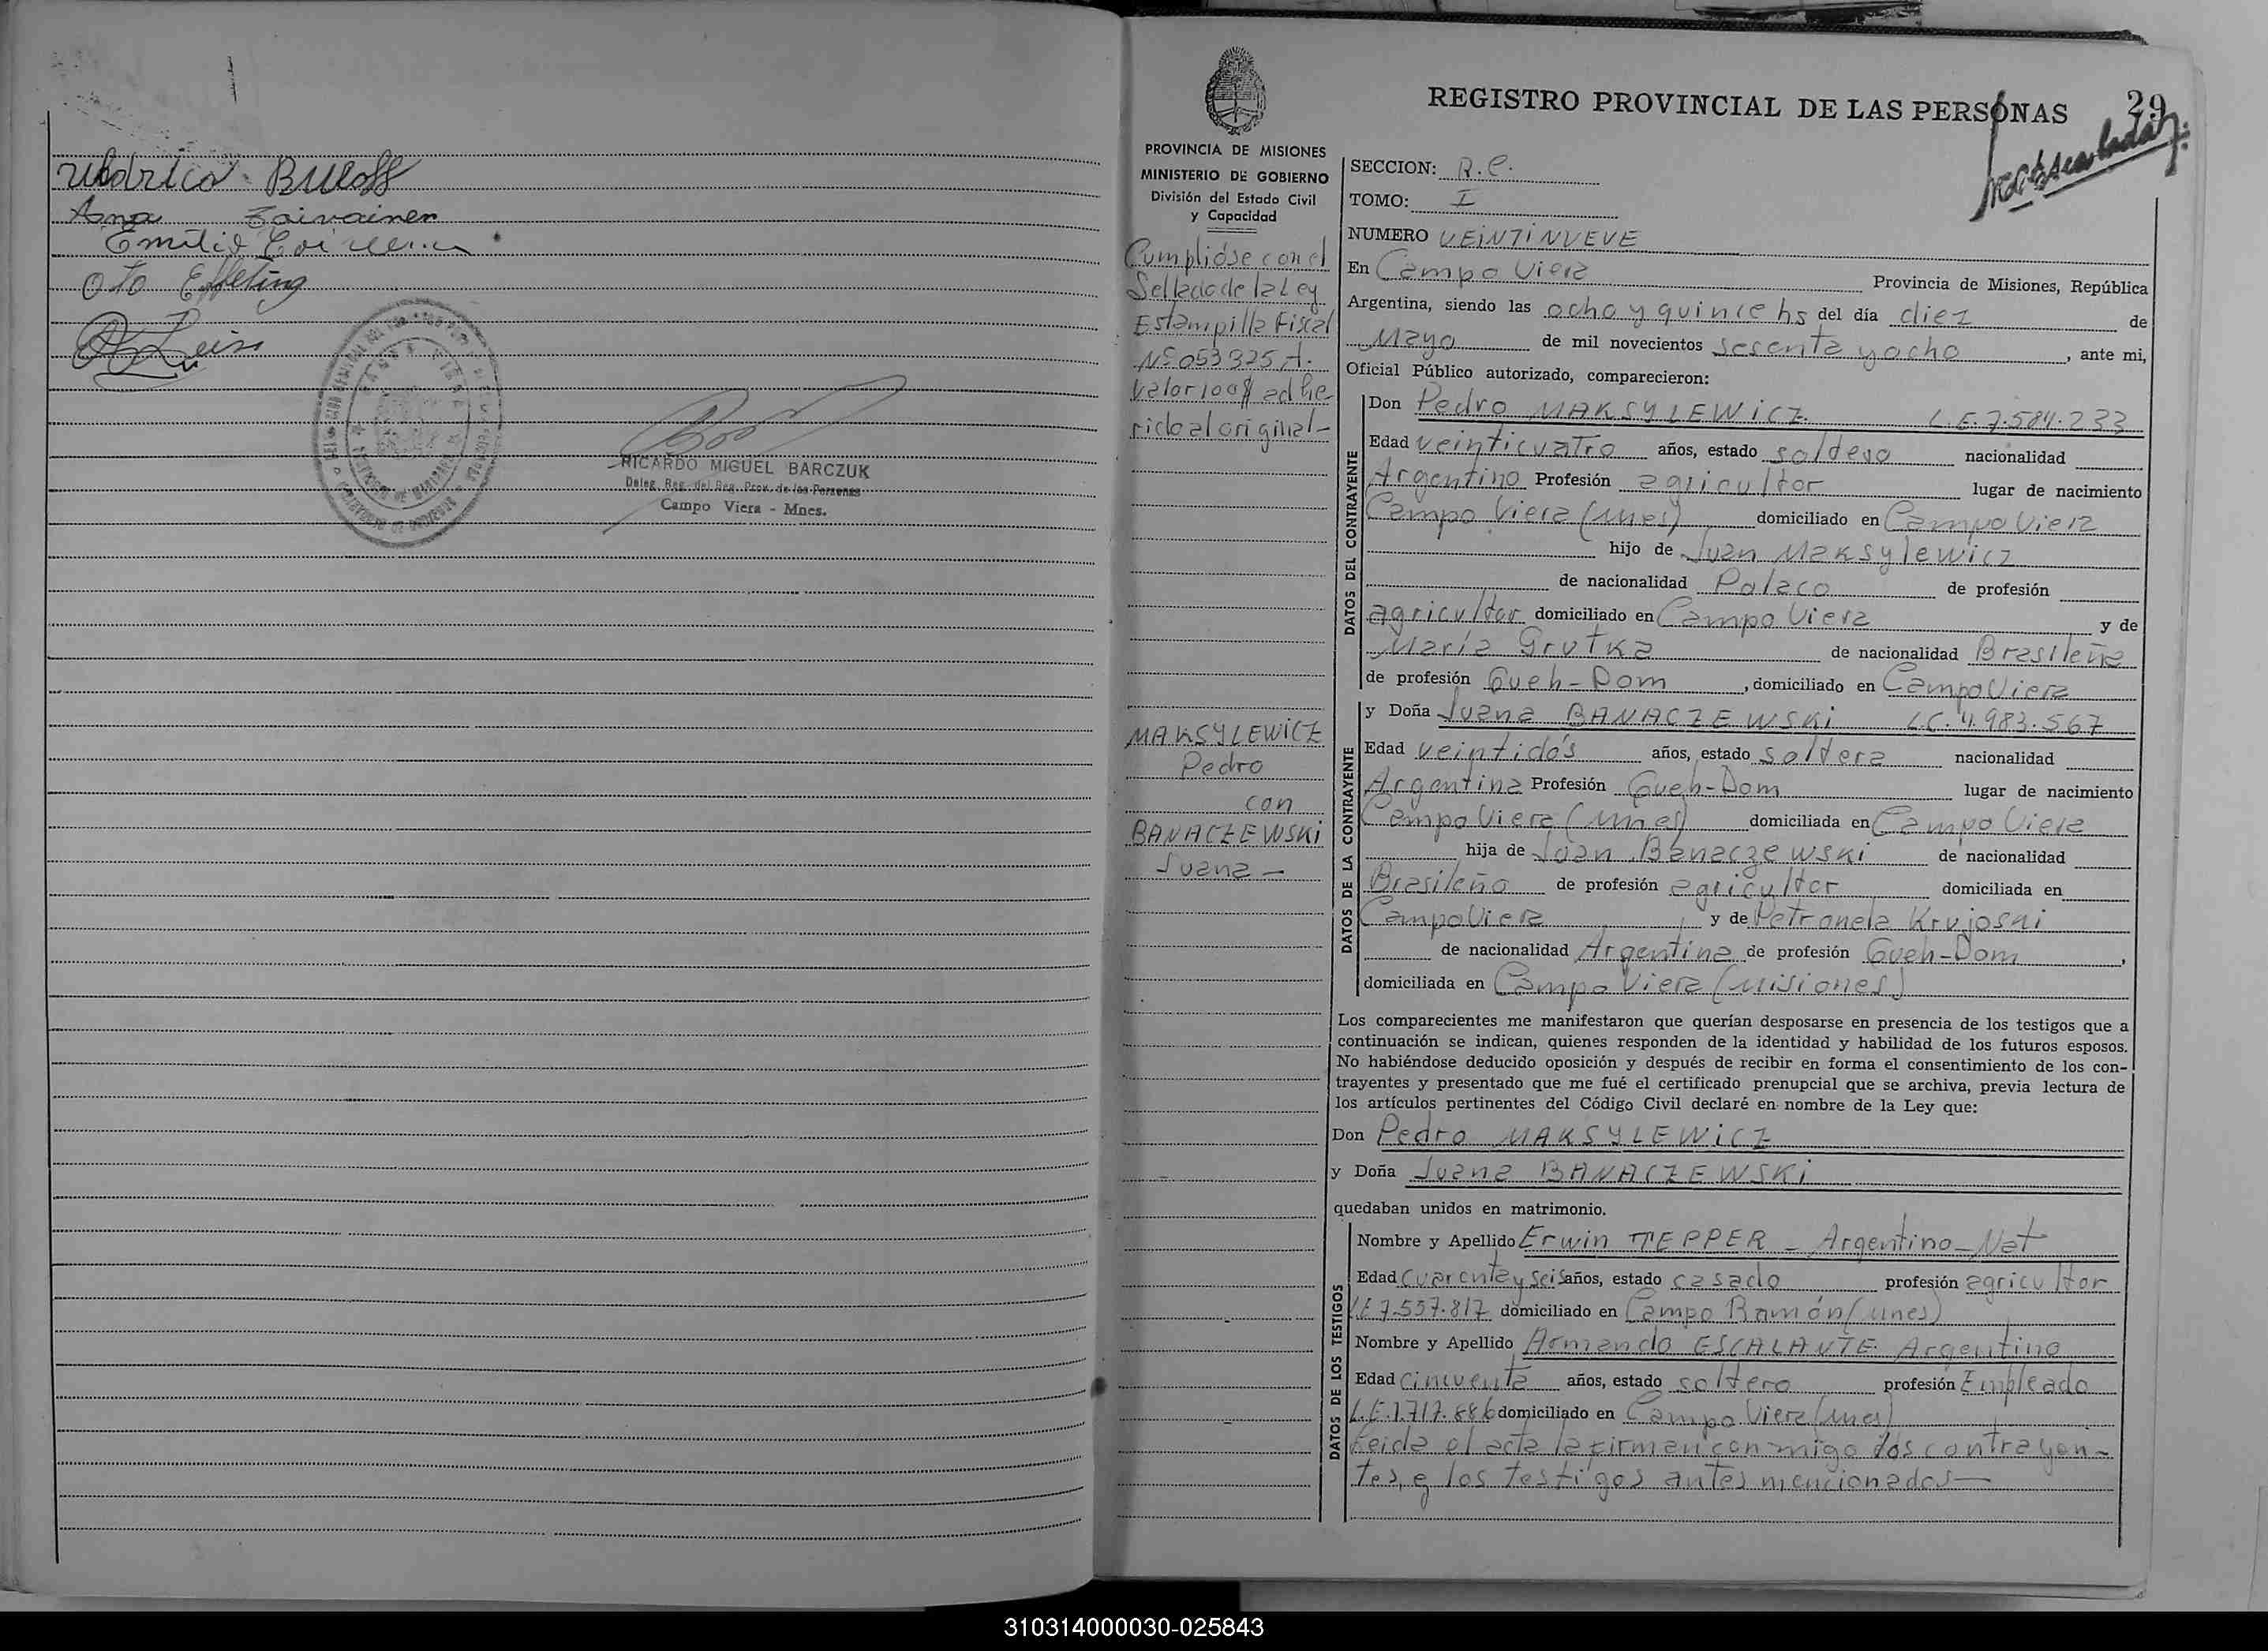 Uldrico Buloff
Ana Toivainen
Emilio
Oto Effeting
RICARDO MIGUEL BARCZUK
Deleg. Reg. del Reg. Prov. de las Personas
Campo Viera - Mnes.
REGISTRO PROVINCIAL DE LAS PERSONAS
29
PROVINCIA DE MISIONES
MINISTERIO DE GOBIERNO
División del Estado Civil
y Capacidad
Cumplióse con el
Sellado de la Ley
Estampilla Fiscal
Nº 053325 A.
Valor 100$ adhe
rido al original-
MAKSYLEWICZ
Pedro
con
BANACZEWSKi
Juana -
SECCION: R.C.
TOMO: I
NUMERO VEiNTiNUEVE
En Campo Viera Provincia de Misiones, República
Argentina, siendo las ocho y quince hs del día diez de
Mayo de mil novecientos sesenta y ocho, ante mi,
Oficial Público autorizado, comparecieron:
DATOS DEL CONTRAYENTE
Don Pedro MAKSYLEWiCZ L.E. 7.584.233
Edad veinticuatro años, estado soltero nacionalidad
Argentino Profesión agricultor lugar de nacimiento
Campo Viera (Mnes) domiciliado en Campo Viera
hijo de Juan Maksylewicz
de nacionalidad Polaco de profesión
agricultor domiciliado en Campo Viera y de
María Grutka de nacionalidad Brasileña
de profesión Queh-Dom, domiciliado en Campo Viera
DATOS DE LA CONTRAYENTE
y Doña Juana BANACZEWSKi L.C. 4.983.567
Edad veintidós años, estado soltera nacionalidad
Argentina Profesión Queh-Dom lugar de nacimiento
Campo Viera (Mnes) domiciliada en Campo Viera
hija de Juan Banaczewski de nacionalidad
Brasileño de profesión agricultor domiciliada en
Campo Viera y de Petronela Krujoski
de nacionalidad Argentina de profesión Queh-Dom,
domiciliada en Campo Viera (Misiones)
Los comparecientes me manifestaron que querían desposarse en presencia de los testigos que a
continuación se indican, quienes responden de la identidad y habilidad de los futuros esposos.
No habiéndose deducido oposición y después de recibir en forma el consentimiento de los con-
trayentes y presentado que me fué el certificado prenupcial que se archiva, previa lectura de
los artículos pertinentes del Código Civil declaré en nombre de la Ley que:
Don Pedro MAKSYLEWiCZ
y Doña Juana BANACZEWSKi
quedaban unidos en matrimonio.
DATOS DE LOS TESTIGOS
Nombre y Apellido Erwin TEPPER - Argentino-Nat
Edad cuarenta y seis años, estado casado profesión agricultor
L.E 7.557.817 domiciliado en Campo Ramón (Mnes)
Nombre y Apellido Armando ESCALANTE Argentino
Edad cincuenta años, estado soltero profesión Empleado
L.E. 1.717.886 domiciliado en Campo Viera (Mnes)
Leida el acta la firman con migo los contrayen-
tes, y los testigos antes mencionados-
310314000030-025843